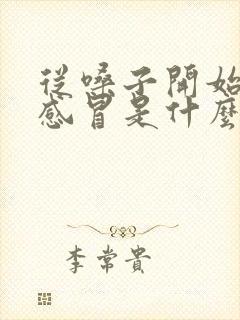 從嗓子開始
感冒是什麼
李常貴